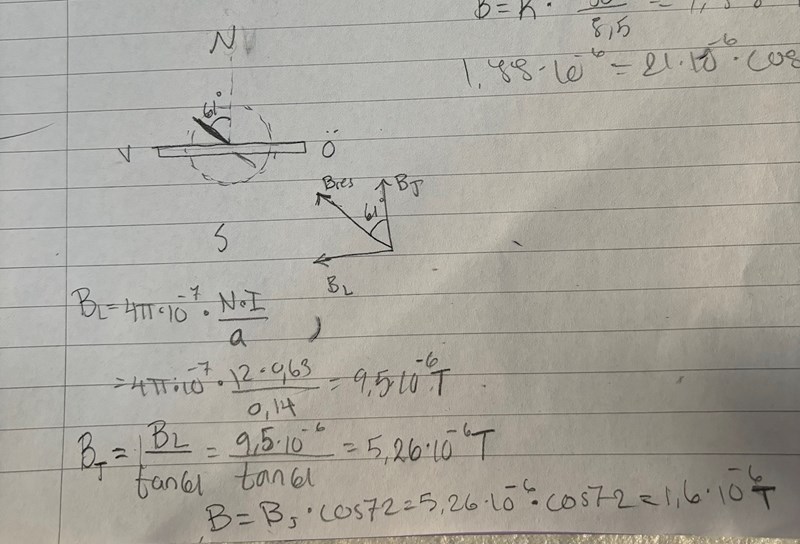 B=K·
8,5
N
1,88·10⁻⁶=21·10⁻⁶·cos
61°
V Ö
Bres BJ
61°
S
BL
BL=4π·10⁻⁷·N·I/a
=4π·10⁻⁷·12·0,63/0,14=9,5·10⁻⁶T
BJ=BL/tan61=9,5·10⁻⁶/tan61=5,26·10⁻⁶T
B=BJ·cos72=5,26·10⁻⁶·cos72=1,6·10⁻⁶T